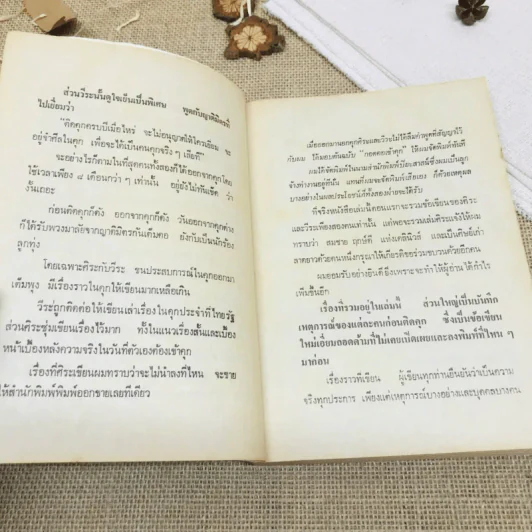 ส่วนวีระนั้นดูใจเย็นเป็นพิเศษ พูดกับญาติมิตรที่
ไปเยี่ยมว่า
"ติดคุกครบปีเมื่อไหร่ จะไม่อนุญาตให้ใครเยี่ยม จะ
อยู่จำศีลในคุก เพื่อจะได้เป็นคนคุกจริง ๆ เสียที"
จะอย่างไรก็ตามในที่สุดคนทั้งสองก็ได้ออกจากคุกโดย
ใช้เวลาเพียง ๘ เดือนกว่า ๆ เท่านั้น อยู่ยังไม่ทันเข็ด ว่า
งั้นเถอะ
ก่อนติดคุกก็ดัง ออกจากคุกก็ดัง วันออกจากคุกต่าง
ก็ได้รับพวงมาลัยจากญาติมิตรกันเต็มคอ ยังกับเป็นนักร้อง
ลูกทุ่ง
โดยเฉพาะศิระกับวีระ ขนประสบการณ์ในคุกออกมา
เต็มพุง มีเรื่องราวในคุกให้เขียนมากเหลือเกิน
วีระถูกติดต่อให้เขียนเล่าเรื่องในคุกประจำที่ไทยรัฐ
ส่วนศิระซุ่มเขียนเรื่องไว้มาก ทั้งในแนวเรื่องสั้นและเบื้อง
หน้าเบื้องหลังความจริงในวันที่ตัวเองต้องเข้าคุก
เรื่องที่ศิระเขียนผมทราบว่าจะไม่นำลงที่ไหน จะขาย
ให้สำนักพิมพ์พิมพ์ออกขายเลยทีเดียว
เมื่อออกมานอกคุกศิระและวีระไม่ได้ลืมคำพูดที่สัญญาไว้
กับผม ได้มอบต้นฉบับ ให้ผมจัดพิมพ์ทันที
บางอย่างในผลประโยชน์ที่ทั้งสองฝ่ายจะได้รับ
ที่จริงหนังสือเล่มนี้ตอนแรกจะรวมข้อเขียนของศิระ
และวีระเพียงสองคนเท่านั้น แต่พอจะรวมเล่มศิระแจ้งให้ผม
ทราบว่า สมชาย ฤกษ์ดี แห่งเดลินิวส์ และเป็นศิษย์เก่า
ลาดยาวด้วยคนหนึ่งกรุณาให้เกียรติขอร่วมขบวนด้วยอีกคน
ผมยอมรับอย่างยินดียิ่งเพราะจะทำให้ผู้อ่าน ได้กำไร
เพิ่มขึ้นอีก
เรื่องที่รวมอยู่ในเล่มนี้ ส่วนใหญ่เป็นบันทึก
เหตุการณ์ของแต่ละคนก่อนติดคุก ซึ่งเป็นข้อเขียน
ใหม่เอี่ยมถอดด้ามที่ไม่เคยเปิดเผยและลงพิมพ์ที่ไหน ๆ
มาก่อน
เรื่องราวที่เขียน ผู้เขียนทุกท่านยืนยันว่าเป็นความ
จริงทุกประการ เพียงแต่เหตุการณ์บางอย่างและบุคคลบางคน